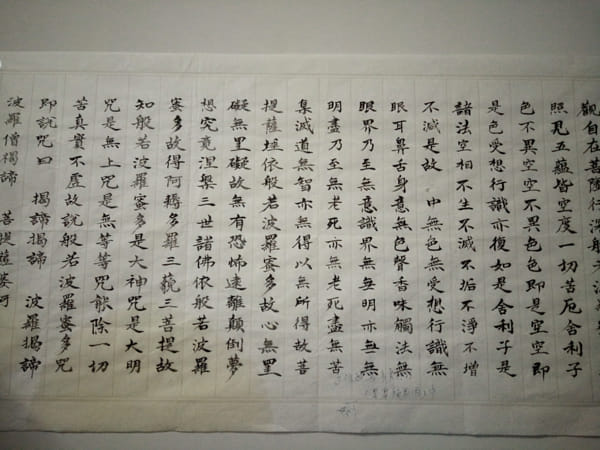 觀自在菩薩行深般若波羅
照見五蘊皆空度一切苦厄舍利子
色不異空空不異色色即是空空即
是色受想行識亦復如是舍利子是
諸法空相不生不滅不垢不淨不增
不減是故 中無色無受想行識無
眼耳鼻舌身意無色聲香味觸法無
眼界乃至無意識界無無明亦無無
明盡乃至無老死亦無老死盡無苦
集滅道無智亦無得以無所得故菩
提薩埵依般若波羅蜜多故心無罣
礙無罣礙故無有恐怖遠離顛倒夢
想究竟涅槃三世諸佛依般若波羅
蜜多故得阿耨多羅三藐三菩提故
知般若波羅蜜多是大神咒是大明
咒是無上咒是無等等咒能除一切
苦真實不虛故說般若波羅蜜多咒
即說咒曰 揭諦揭諦 波羅揭諦
波羅僧揭諦 菩提薩婆訶